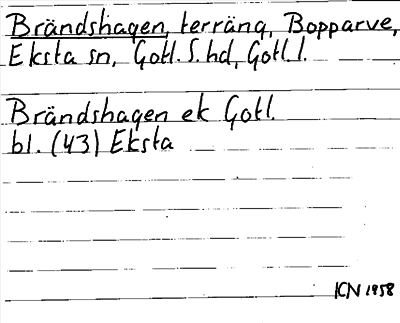 Brändshagen, terräng, Bopparve,
Eksta sn, Gotl. S. hd, Gotl. l.
Brändshagen ek Gotl.
bl. (43) Eksta
ICN 1958